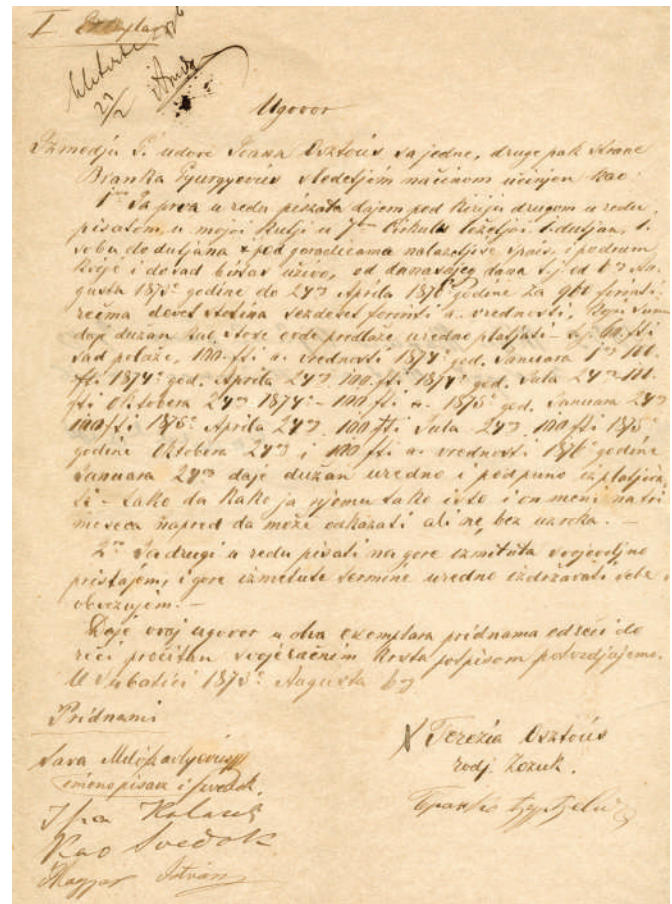 I Exemplar
Ugovor
Izmedju T. udove Ivana Osztoics sa jedne, druge pak strane
Branka Gyurgyovics sledećim načinom učinjen kao:
1 Ja prva u redu piszata dajem pod kiriju drugom u redu
pisatom, u mojoj kutji u 7 ležećoj 1. dutjan, 1.
sobu do dutjana i pod goradicama nalazećive i podrum
koje i dosad birtas uživo, od danasnjeg dana t.j. od 6 Au-
gusta 1873 godine do 24 Aprila 1876 godine za 960 forinti
rečma devet stotina šezdeset forinti a. vrednosti, koju sumu
daje dužan uredno platjati - t.j. 60 fti
sad polaže, 100 fti a. vrednosti 1874 god. Januara 1 100
fti 1874 god. Aprila 24 100 fti 1874 god. Jula 24 100
fti Oktobera 24 1874 - 100 fti a. 1875 god. Januara 24
100 fti 1875 Aprila 24 100 fti Jula 24 100 fti 1875
godine Oktobera 24 i 100 fti a. vrednosti 1876 godine
Januara 24 daje dužan uredno i podpuno izplatjiva-
ti - tako da kako ja njemu tako isto i on meni na tri
meseca napred da može odkazati ali ne bez uzroka. -
2 Ja drugi u redu pisati na gore izmituta svojevoljno
pristajem, i gore izmetute termine uredno izdržavati sebe
obvezujem. -
Daje ovaj ugovor u dva exemplara pridnama od reči do
reči pročitan svojeručnim krsta potpisom potverdjajemo.
U Subatici 1873 Augusta 6
Pridnami
Sava
imenopisac i svedok.
X Terezia Osztoics
rodj. Zozuk.
Kao Svedok
Magyar István